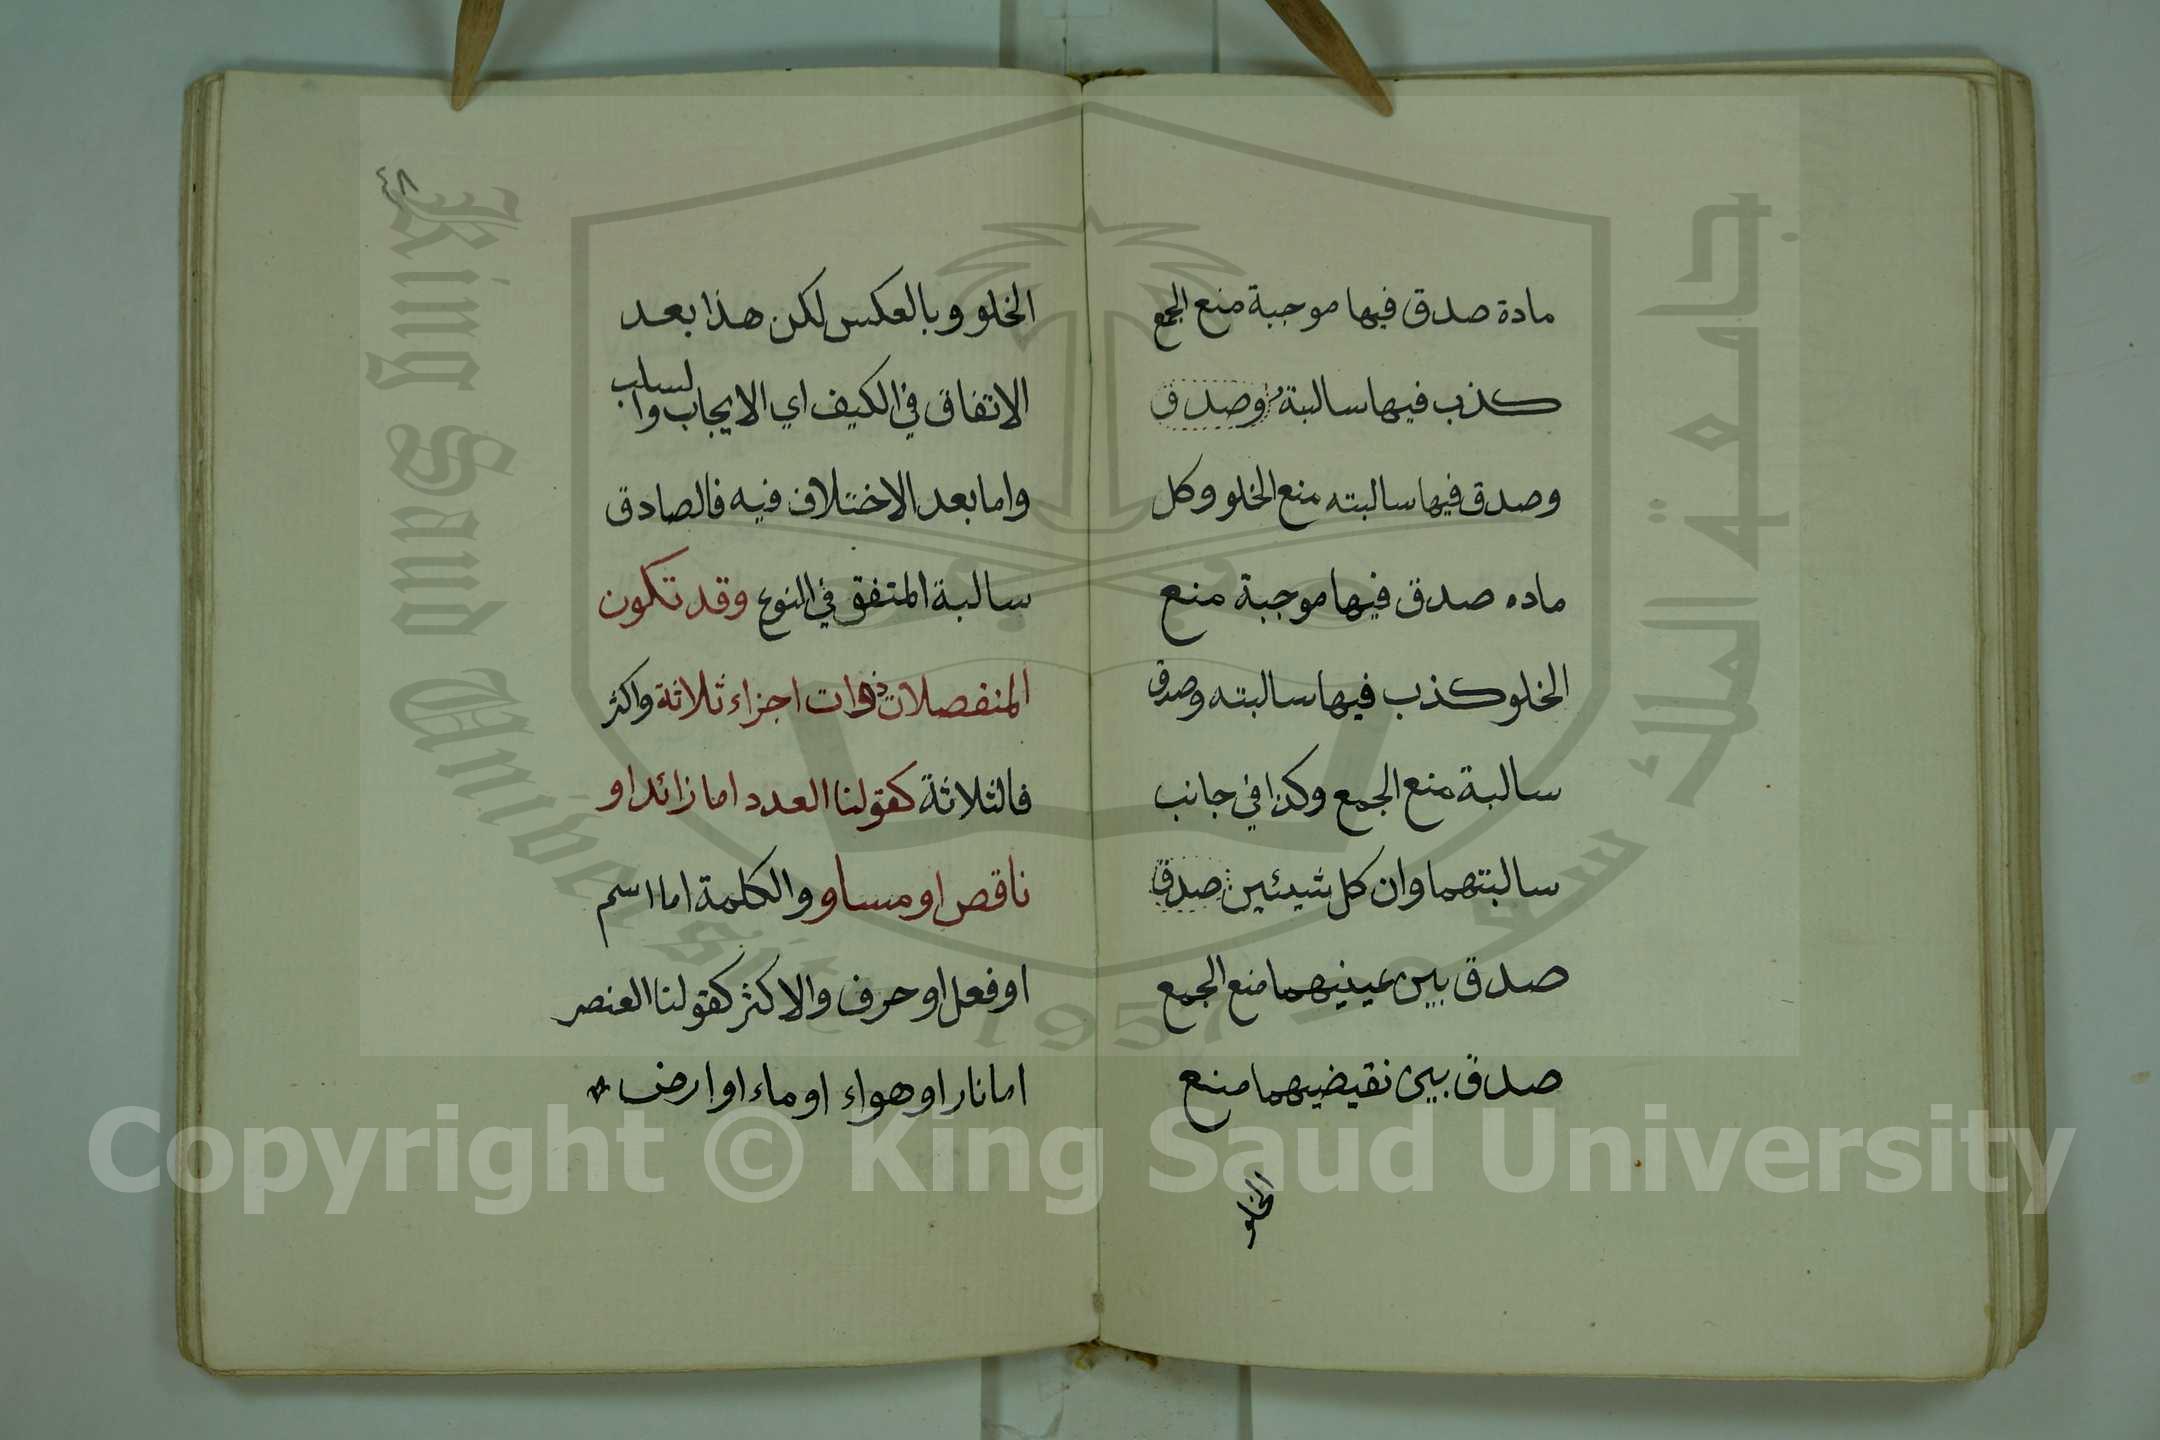 مادة صدق فيها موجبة منع الجمع
كذب فيها سالبة وصدق
وصدق فيها سالبته منع الخلو وكل
ماده صدق فيها موجبة منع
الخلو كذب فيها سالبته وصدق
سالبة منع الجمع وكذا في جانب
سالبتهما وان كل شيئين صدق
صدق بين عينيهما منع الجمع
صدق بين نقيضيهما منع
الخلو
٤٨
الخلو وبالعكس لكن هذا بعد
الاتفاق في الكيف اي الايجاب والسلب
واما بعد الاختلاف فيه فالصادق
سالبة المتفق في النوع وقد تكون
المنفصلات ذوات اجزاء ثلاثة واكثر
فالثلاثة كقولنا العدد اما زائد او
ناقص او مساو والكلمة اما اسم
او فعل او حرف والاكثر كقولنا العنصر
اما نار او هواء او ماء او ارض
جامعة الملك سعود
King Saud University
1957
Copyright © King Saud University